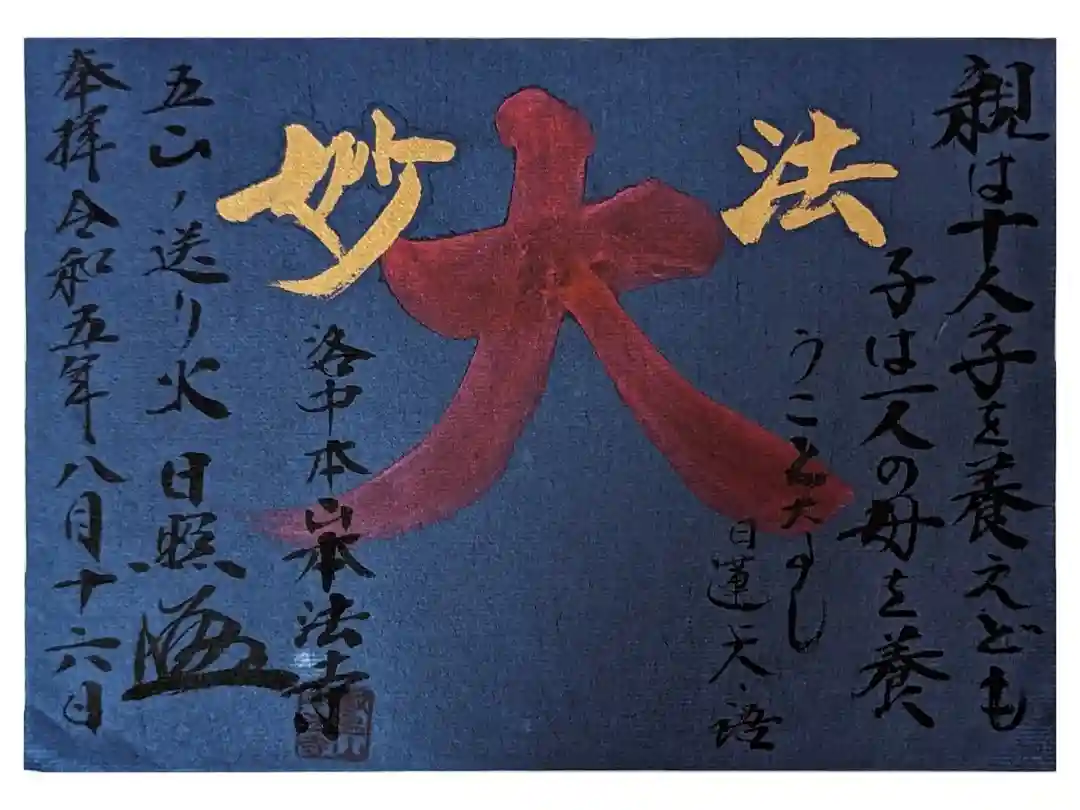 親は十人子を養えども
子は一人の母を養
うこと
日蓮
法
大
妙
洛中本山本法寺
五山ノ送り火 日照
奉拝 令和五年八月十六日